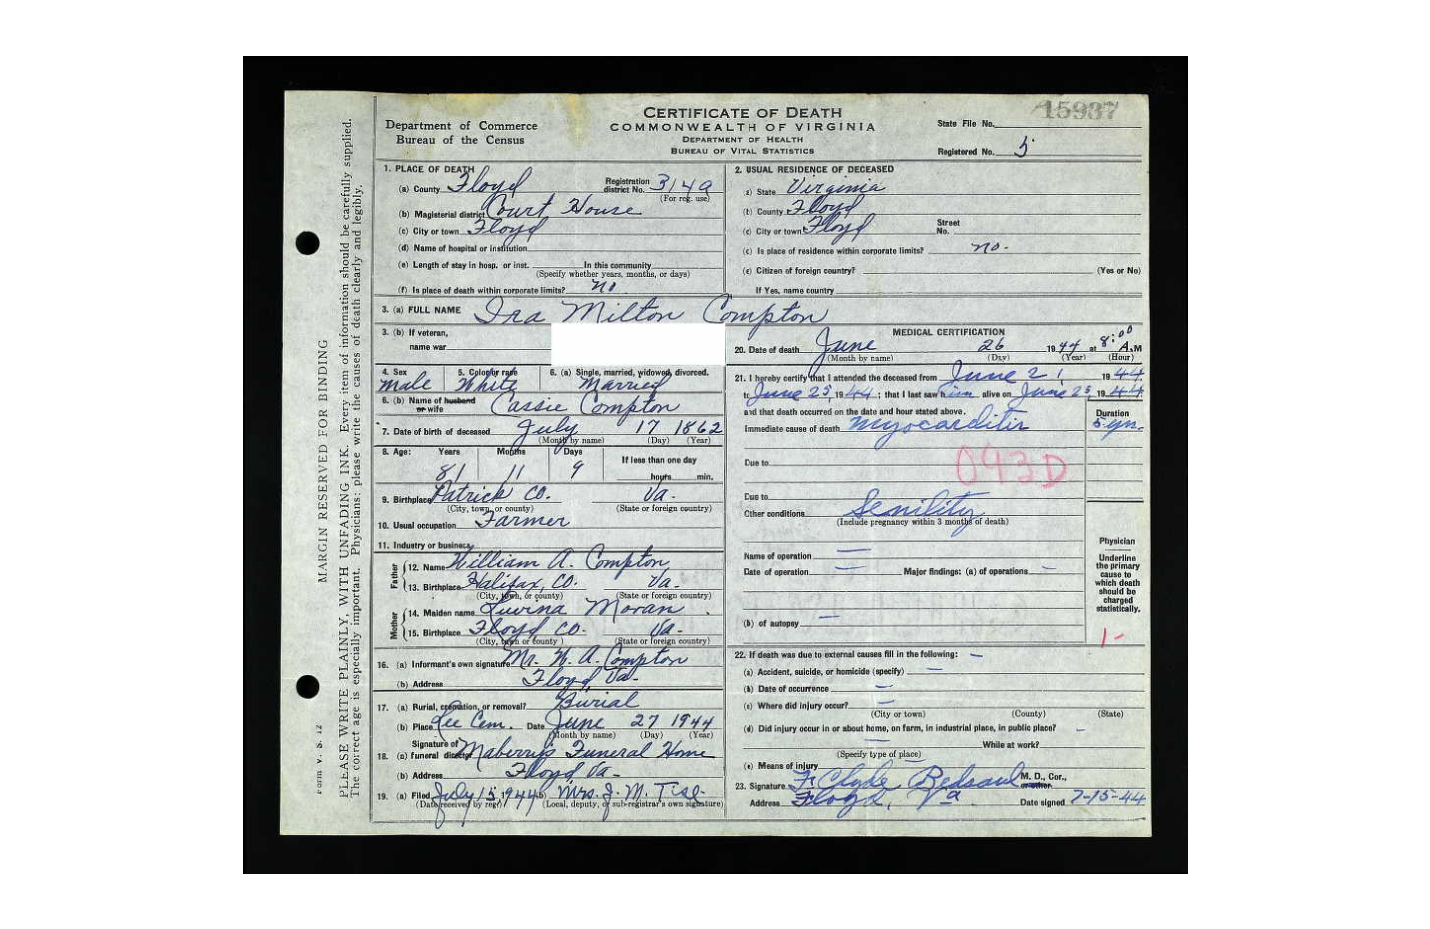 15937
CERTIFICATE OF DEATH
COMMONWEALTH OF VIRGINIA
DEPARTMENT OF HEALTH
BUREAU OF VITAL STATISTICS
Department of Commerce
Bureau of the Census
State File No.
Registered No. 5
MARGIN RESERVED FOR BINDING
PLEASE WRITE PLAINLY, WITH UNFADING INK. Every item of information should be carefully supplied.
The correct age is especially important. Physicians: please write the causes of death clearly and legibly.
Form V. S. 12
1. PLACE OF DEATH
(a) County Floyd Registration district No. 3149
(For reg. use)
(b) Magisterial district Court House
(c) City or town Floyd
(d) Name of hospital or institution
(e) Length of stay in hosp. or inst. In this community
(Specify whether years, months, or days)
(f) Is place of death within corporate limits? no
2. USUAL RESIDENCE OF DECEASED
a) State Virginia
(b) County Floyd
(c) City or town Floyd Street No.
(c) Is place of residence within corporate limits? no.
(e) Citizen of foreign country? (Yes or No)
If Yes, name country
3. (a) FULL NAME Ira Milton Compton
3. (b) If veteran,
name war
4. Sex male 5. Color or race White 6. (a) Single, married, widowed, divorced. Married
6. (b) Name of husband or wife Cassie Compton
7. Date of birth of deceased July 17 1862
(Month by name) (Day) (Year)
8. Age: Years Months Days If less than one day
81 11 9 hours min.
9. Birthplace Patrick Co. Va.
(City, town, or county) (State or foreign country)
10. Usual occupation Farmer
11. Industry or business
Father
12. Name William A. Compton
13. Birthplace Halifax Co. Va.
(City, town, or county) (State or foreign country)
Mother
14. Maiden name Luvina Moran
15. Birthplace Floyd Co. Va.
(City, town or county) (State or foreign country)
16. (a) Informant's own signature Mr. W. A. Compton
(b) Address Floyd Va.
17. (a) Burial, cremation, or removal? Burial
(b) Place Lee Cem. Date June 27 1944
(Month by name) (Day) (Year)
18. (a) Signature of funeral director Maberry's Funeral Home
(b) Address Floyd Va.
19. (a) Filed July 15, 1944 (b) Mrs. J. M.
(Date received by reg.) (Local, deputy, or sub-registrar's own signature)
MEDICAL CERTIFICATION
20. Date of death June 26 1944 at 8:00 A.M
(Month by name) (Day) (Year) (Hour)
21. I hereby certify that I attended the deceased from June 21 1944
to June 25, 1944; that I last saw him alive on June 25, 1944
and that death occurred on the date and hour stated above. Duration
Immediate cause of death myocarditis 5 yrs.
Due to 093D
Due to
Other conditions Senility
(Include pregnancy within 3 months of death)
Name of operation —
Date of operation — Major findings: (a) of operations —
(b) of autopsy —
Physician
Underline
the primary
cause to
which death
should be
charged
statistically.
1-
22. If death was due to external causes fill in the following: —
(a) Accident, suicide, or homicide (specify) —
(b) Date of occurrence —
(c) Where did injury occur? —
(City or town) (County) (State)
(d) Did injury occur in or about home, on farm, in industrial place, in public place? —
— While at work?
(Specify type of place)
(e) Means of injury
23. Signature F. Clyde Bedsaul M. D., Cor., or other.
Address Floyd, Va Date signed 7-15-44